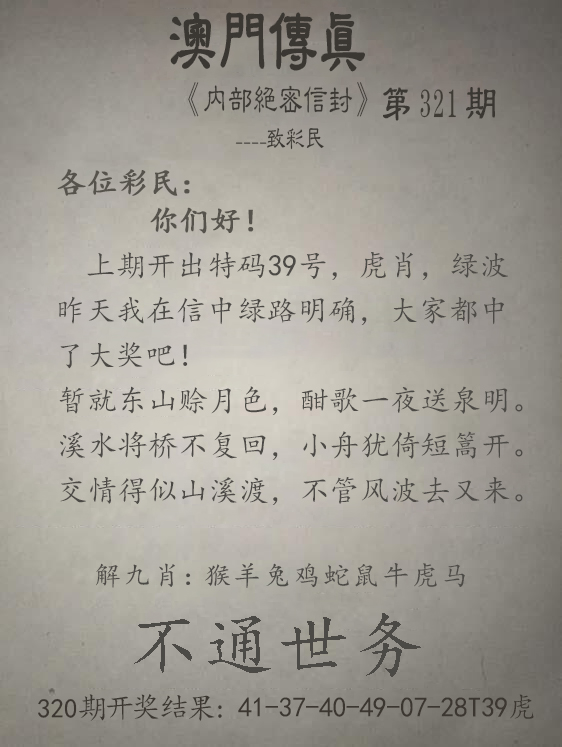 澳門傳眞
《内部絕密信封》第321期
----致彩民
各位彩民：
你们好！
上期开出特码39号，虎肖，绿波
昨天我在信中绿路明确，大家都中
了大奖吧！
暂就东山赊月色，酣歌一夜送泉明。
溪水将桥不复回，小舟犹倚短篙开。
交情得似山溪渡，不管风波去又来。
解九肖：猴羊兔鸡蛇鼠牛虎马
不通世务
320期开奖结果：41-37-40-49-07-28T39虎